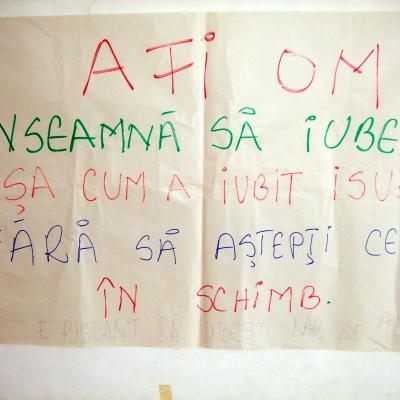 A FI OM
NSEAMNĂ SĂ IUBE
ȘA CUM A IUBIT ISUS
FĂRĂ SĂ AȘTEPȚI CE
ÎN SCHIMB.
E RISCANT SĂ IUBEȘTI DAR SE ME